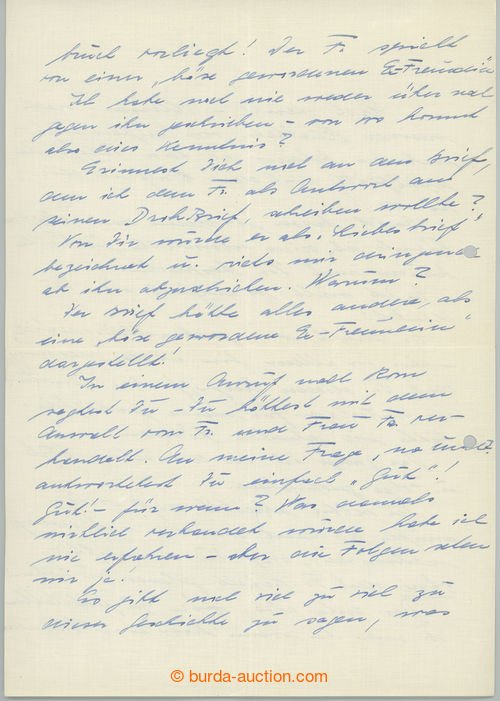 bruch vorliegt! Der F. spricht
von einer "böse gewordenen Ex-Freundin"
Ich habe noch nie weder über noch
gegen ihn geschrieben – von wo kommt
also diese Kenntnis?
Erinnerst Dich noch an den Brief,
den ich dem Fr. als Antwort auf
seinen Droh-Brief, schreiben wollte?
Von Dir wurde er als "Liebesbrief"
bezeichnet u. riets mir dringend
ab ihn abzuschicken. Warum?
Der Brief hätte alles andere, als
eine "böse gewordene Ex-Freundin"
dargestellt!
In einem Anruf nach Rom
sagtest Du – Du hättest mit dem
Anwalt vom Fr. und Frau Fr. ver-
handelt. Auf meine Frage, na und?
antwortetest Du einfach "Gut"!
Gut! – für wem? Was damals
wirklich verhandelt wurde habe ich
nie erfahren – aber die Folgen sehen
wir ja!
Es gibt noch viel zu viel zu
dieser Geschichte zu sagen, was
© burda-auction.com